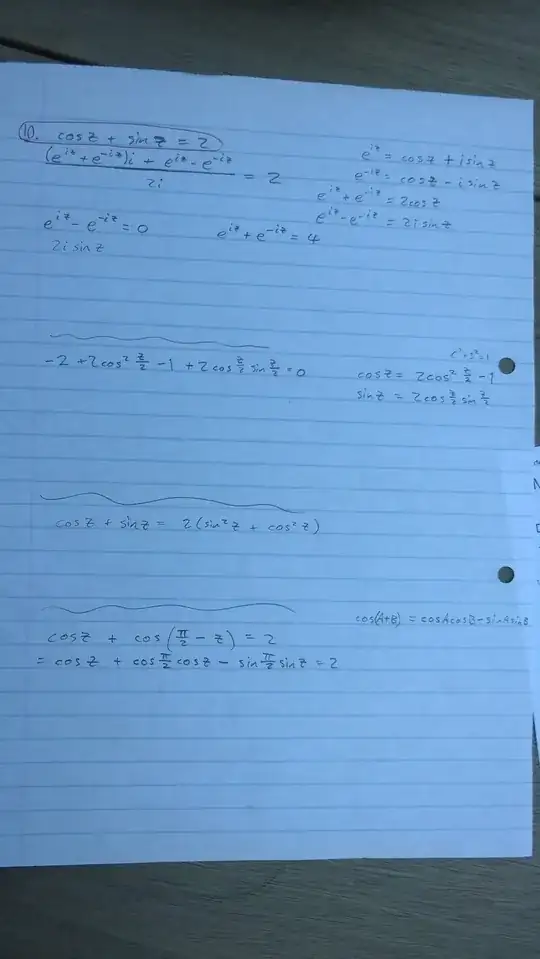 10. cos z + sin z = 2
(e^{iz} + e^{-iz})i + e^{iz} - e^{-iz} / 2i = 2
e^{iz} = cos z + i sin z
e^{-iz} = cos z - i sin z
e^{iz} + e^{-iz} = 2cos z
e^{iz} - e^{-iz} = 2i sin z
e^{iz} - e^{-iz} = 0
e^{iz} + e^{-iz} = 4
2i sin z
-2 + 2cos² z/2 - 1 + 2cos z/2 sin z/2 = 0
cos z = 2cos² z/2 - 1
sin z = 2cos z/2 sin z/2
cos z + sin z = 2(sin² z + cos² z)
cos(A+B) = cosAcosB - sinAsinB
cos z + cos(π/2 - z) = 2
= cos z + cos π/2 cos z - sin π/2 sin z = 2